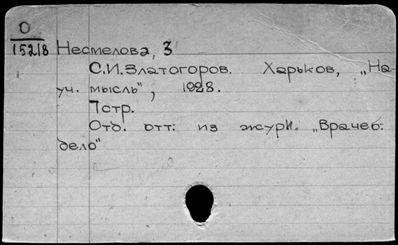 О
15218 Несмелова, З
С.И.Златогоров. Харьков, „На
уч. мысль", 1928.
7стр.
Отд. отт. из журн. „Врачеб.
дело"